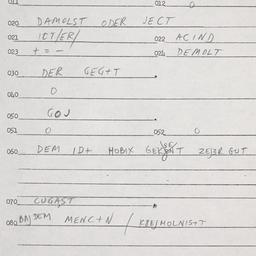 011 012 0
020 DAMOLST ODER JECT
021 IDT/ER/ 022 ACIND
023 + = - 024 DEMOLT
030 DER GEG+T
040 0
050 GOJ
051 0 052 0
060 DEM ID+ MOBIX ZEJER GUT
070 CUGAST
080 DEM MENC+N / KREJMOLNIS+T